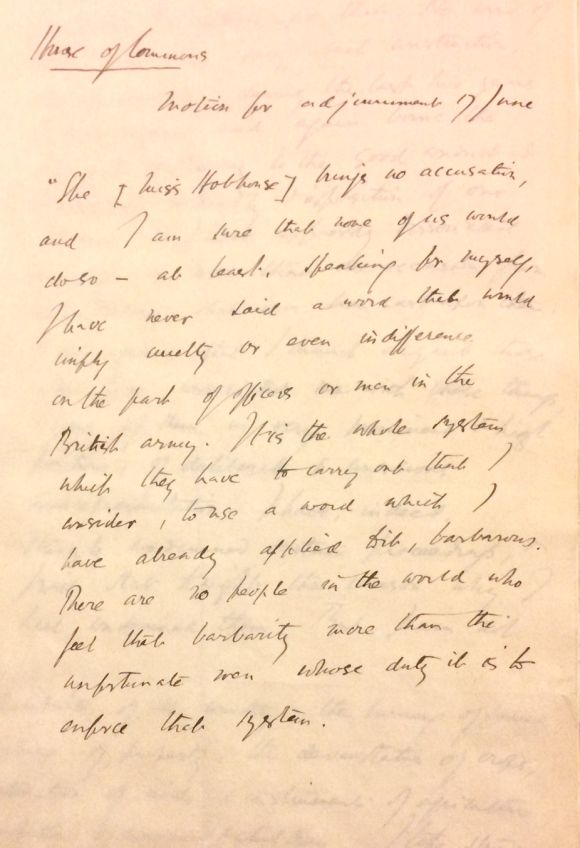 House of Commons
Motion for adjournment 17 June
"She [Miss Hobhouse] brings no accusation,
and I am sure that none of us would
do so – at least, speaking for myself,
I have never said a word that would
imply cruelty or even indifference
on the part of officers or men in the
British army. It is the whole system
which they have to carry out that I
consider, to use a word which I
have already applied to it, barbarous.
There are no people in the world who
feel that barbarity more than the
unfortunate men whose duty it is to
enforce that system.